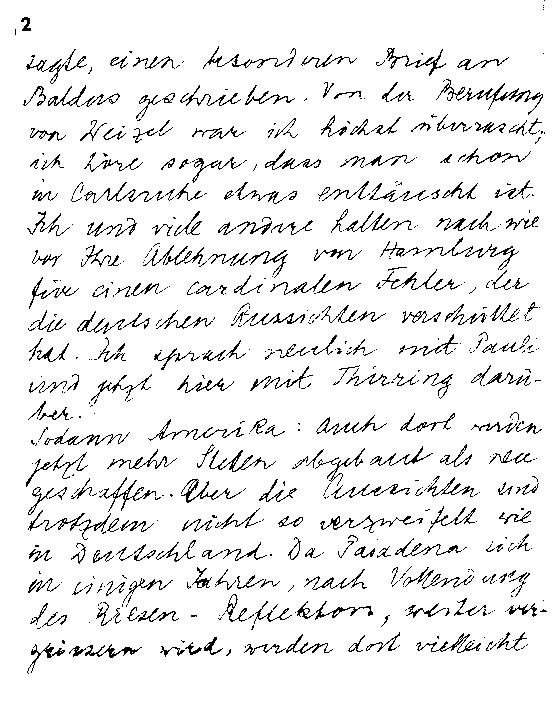 2
sagte, einen besonderen Brief an
Balders geschrieben. Von der Berufung
von Weizel war ich höchst überrascht;
ich höre sogar, dass man schon
in Carlsruhe etwas enttäuscht ist.
Ich und viele andere halten nach wie
vor Ihre Ablehnung von Hamburg
für einen cardinalen Fehler, der
die deutschen Aussichten verschüttet
hat. Ich sprach neulich mit Pauli
und jetzt hier mit Thirring darü-
ber.
Sodann Amerika: Auch dort werden
jetzt mehr Stellen abgebaut als neu
geschaffen. Aber die Aussichten sind
trotzdem nicht so verzweifelt wie
in Deutschland. Da Pasadena sich
in einigen Jahren, nach Vollendung
des Riesen-Reflektors, weiter ver-
grössern wird, werden dort vielleicht